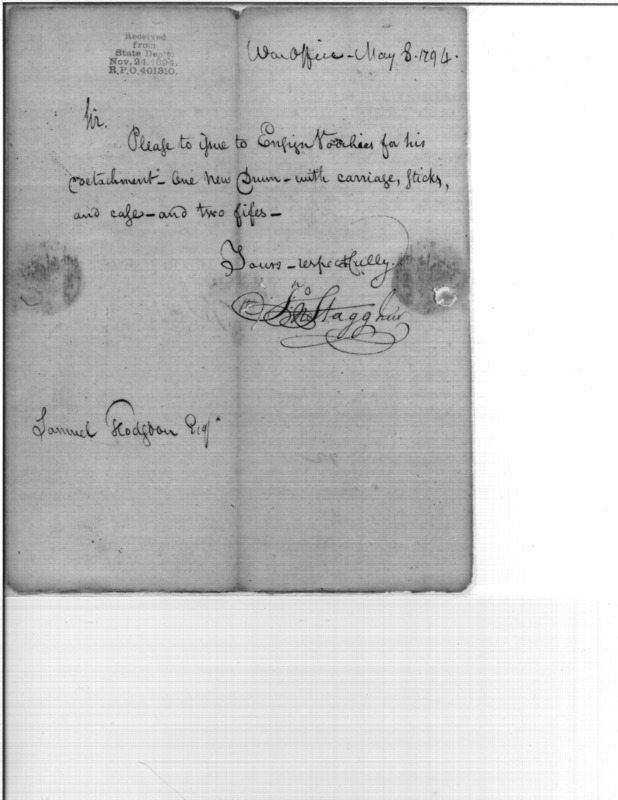 Received
from
State Dep't.
Nov. 24. 1894.
R.P.O. 401310.
War Office - May 8. 1794.
Sir.
Please to issue to Ensign Voorhees for his
detachment - One new Drum - with carriage, sticks,
and case - and two fifes -
Yours - respectfully.
Jno Stagg Junr
Samuel Hodgdon Esqr